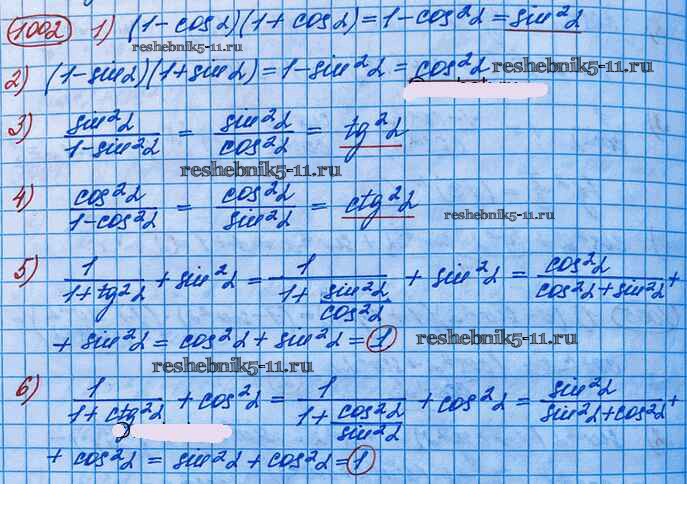 1002 1) (1-cosα)(1+cosα)=1-cos²α=sin²α
reshebnik5-11.ru
2) (1-sinα)(1+sinα)=1-sin²α=cos²α reshebnik5-11.ru
3) sin²α/(1-sin²α) = sin²α/cos²α = tg²α
reshebnik5-11.ru
4) cos²α/(1-cos²α) = cos²α/sin²α = ctg²α reshebnik5-11.ru
5) 1/(1+tg²α) + sin²α = 1/(1+sin²α/cos²α) + sin²α = cos²α/(cos²α+sin²α) +
+ sin²α = cos²α + sin²α = 1 reshebnik5-11.ru
reshebnik5-11.ru
6) 1/(1+ctg²α) + cos²α = 1/(1+cos²α/sin²α) + cos²α = sin²α/(sin²α+cos²α) +
+ cos²α = sin²α + cos²α = 1